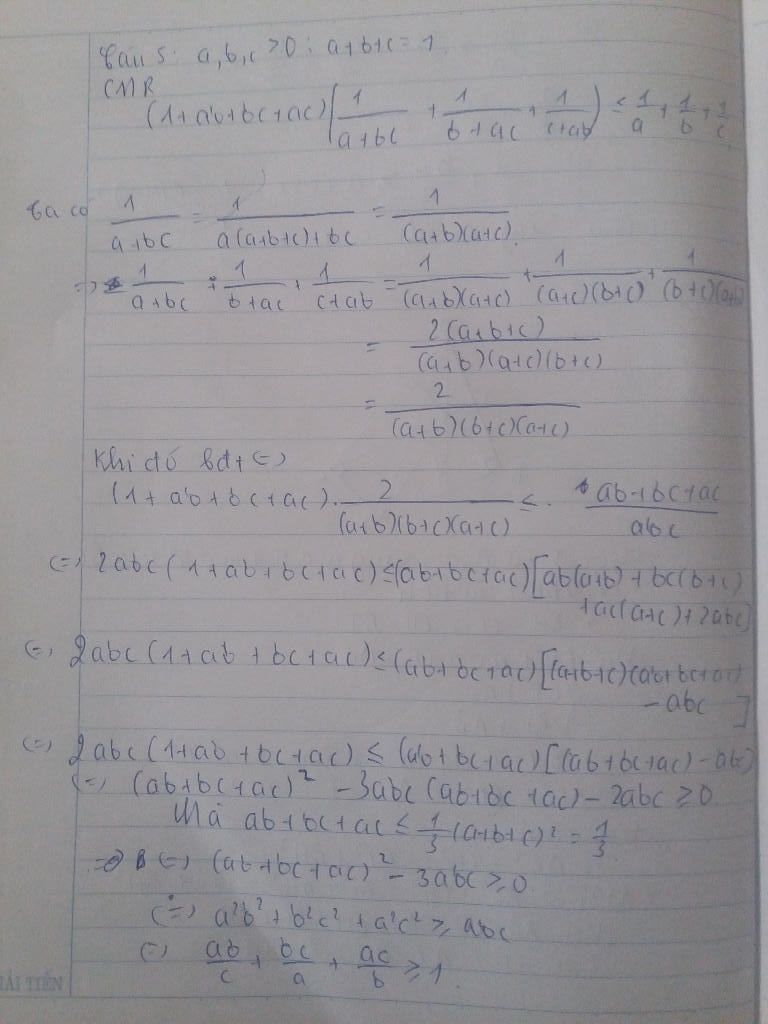 Câu 5: a,b,c >0 : a+b+c = 1
CMR
(1+ab+bc+ac)(1/(a+bc) + 1/(b+ac) + 1/(c+ab)) ≤ 1/a + 1/b + 1/c
Ta có 1/(a+bc) = 1/(a(a+b+c)+bc) = 1/((a+b)(a+c))
=> 1/(a+bc) + 1/(b+ac) + 1/(c+ab) = 1/((a+b)(a+c)) + 1/((a+c)(b+c)) + 1/((b+c)(a+b))
= 2(a+b+c)/((a+b)(a+c)(b+c))
= 2/((a+b)(b+c)(a+c))
Khi đó bđt (=)
(1+ab+bc+ac). 2/((a+b)(b+c)(a+c)) ≤ (ab+bc+ac)/abc
(=) 2abc(1+ab+bc+ac) ≤ (ab+bc+ac)[ab(a+b) + bc(b+c)
+ac(a+c)+2abc]
(=) 2abc(1+ab+bc+ac) ≤ (ab+bc+ac)[(a+b+c)(ab+bc+ac)
-abc ]
(=) 2abc(1+ab+bc+ac) ≤ (ab+bc+ac)[(ab+bc+ac)-abc]
(=) (ab+bc+ac)² -3abc(ab+bc+ac) - 2abc ≥ 0
Mà ab+bc+ac ≤ 1/3 (a+b+c)² = 1/3
=> (=) (ab+bc+ac)² - 3abc ≥ 0
(=) a²b² + b²c² + a²c² ≥ abc
(=) ab/c + bc/a + ac/b ≥ 1.
TIẾN